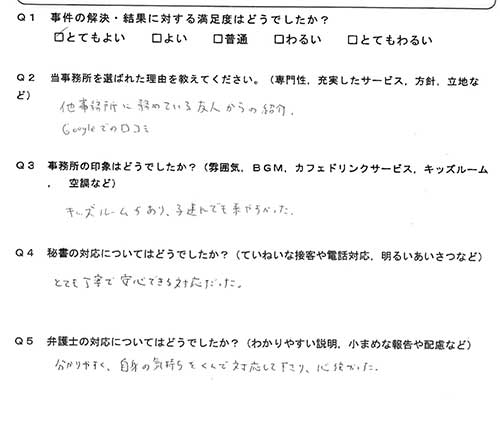 Q1 事件の解決・結果に対する満足度はどうでしたか?
☑とてもよい □よい □普通 □わるい □とてもわるい
Q2 当事務所を選ばれた理由を教えてください。(専門性,充実したサービス,方針,立地な
ど)
他事務所に務めている友人からの紹介.
Googleでの口コミ
Q3 事務所の印象はどうでしたか?(雰囲気,BGM,カフェドリンクサービス,キッズルーム
, 空調など)
キッズルームがあり、子連れでも来やすかった.
Q4 秘書の対応についてはどうでしたか?(ていねいな接客や電話対応,明るいあいさつなど)
とても丁寧で安心できる対応だった。
Q5 弁護士の対応についてはどうでしたか?(わかりやすい説明,小まめな報告や配慮など)
分かりやすく、自身の気持ちをくんで対応して下さり、心強かった.